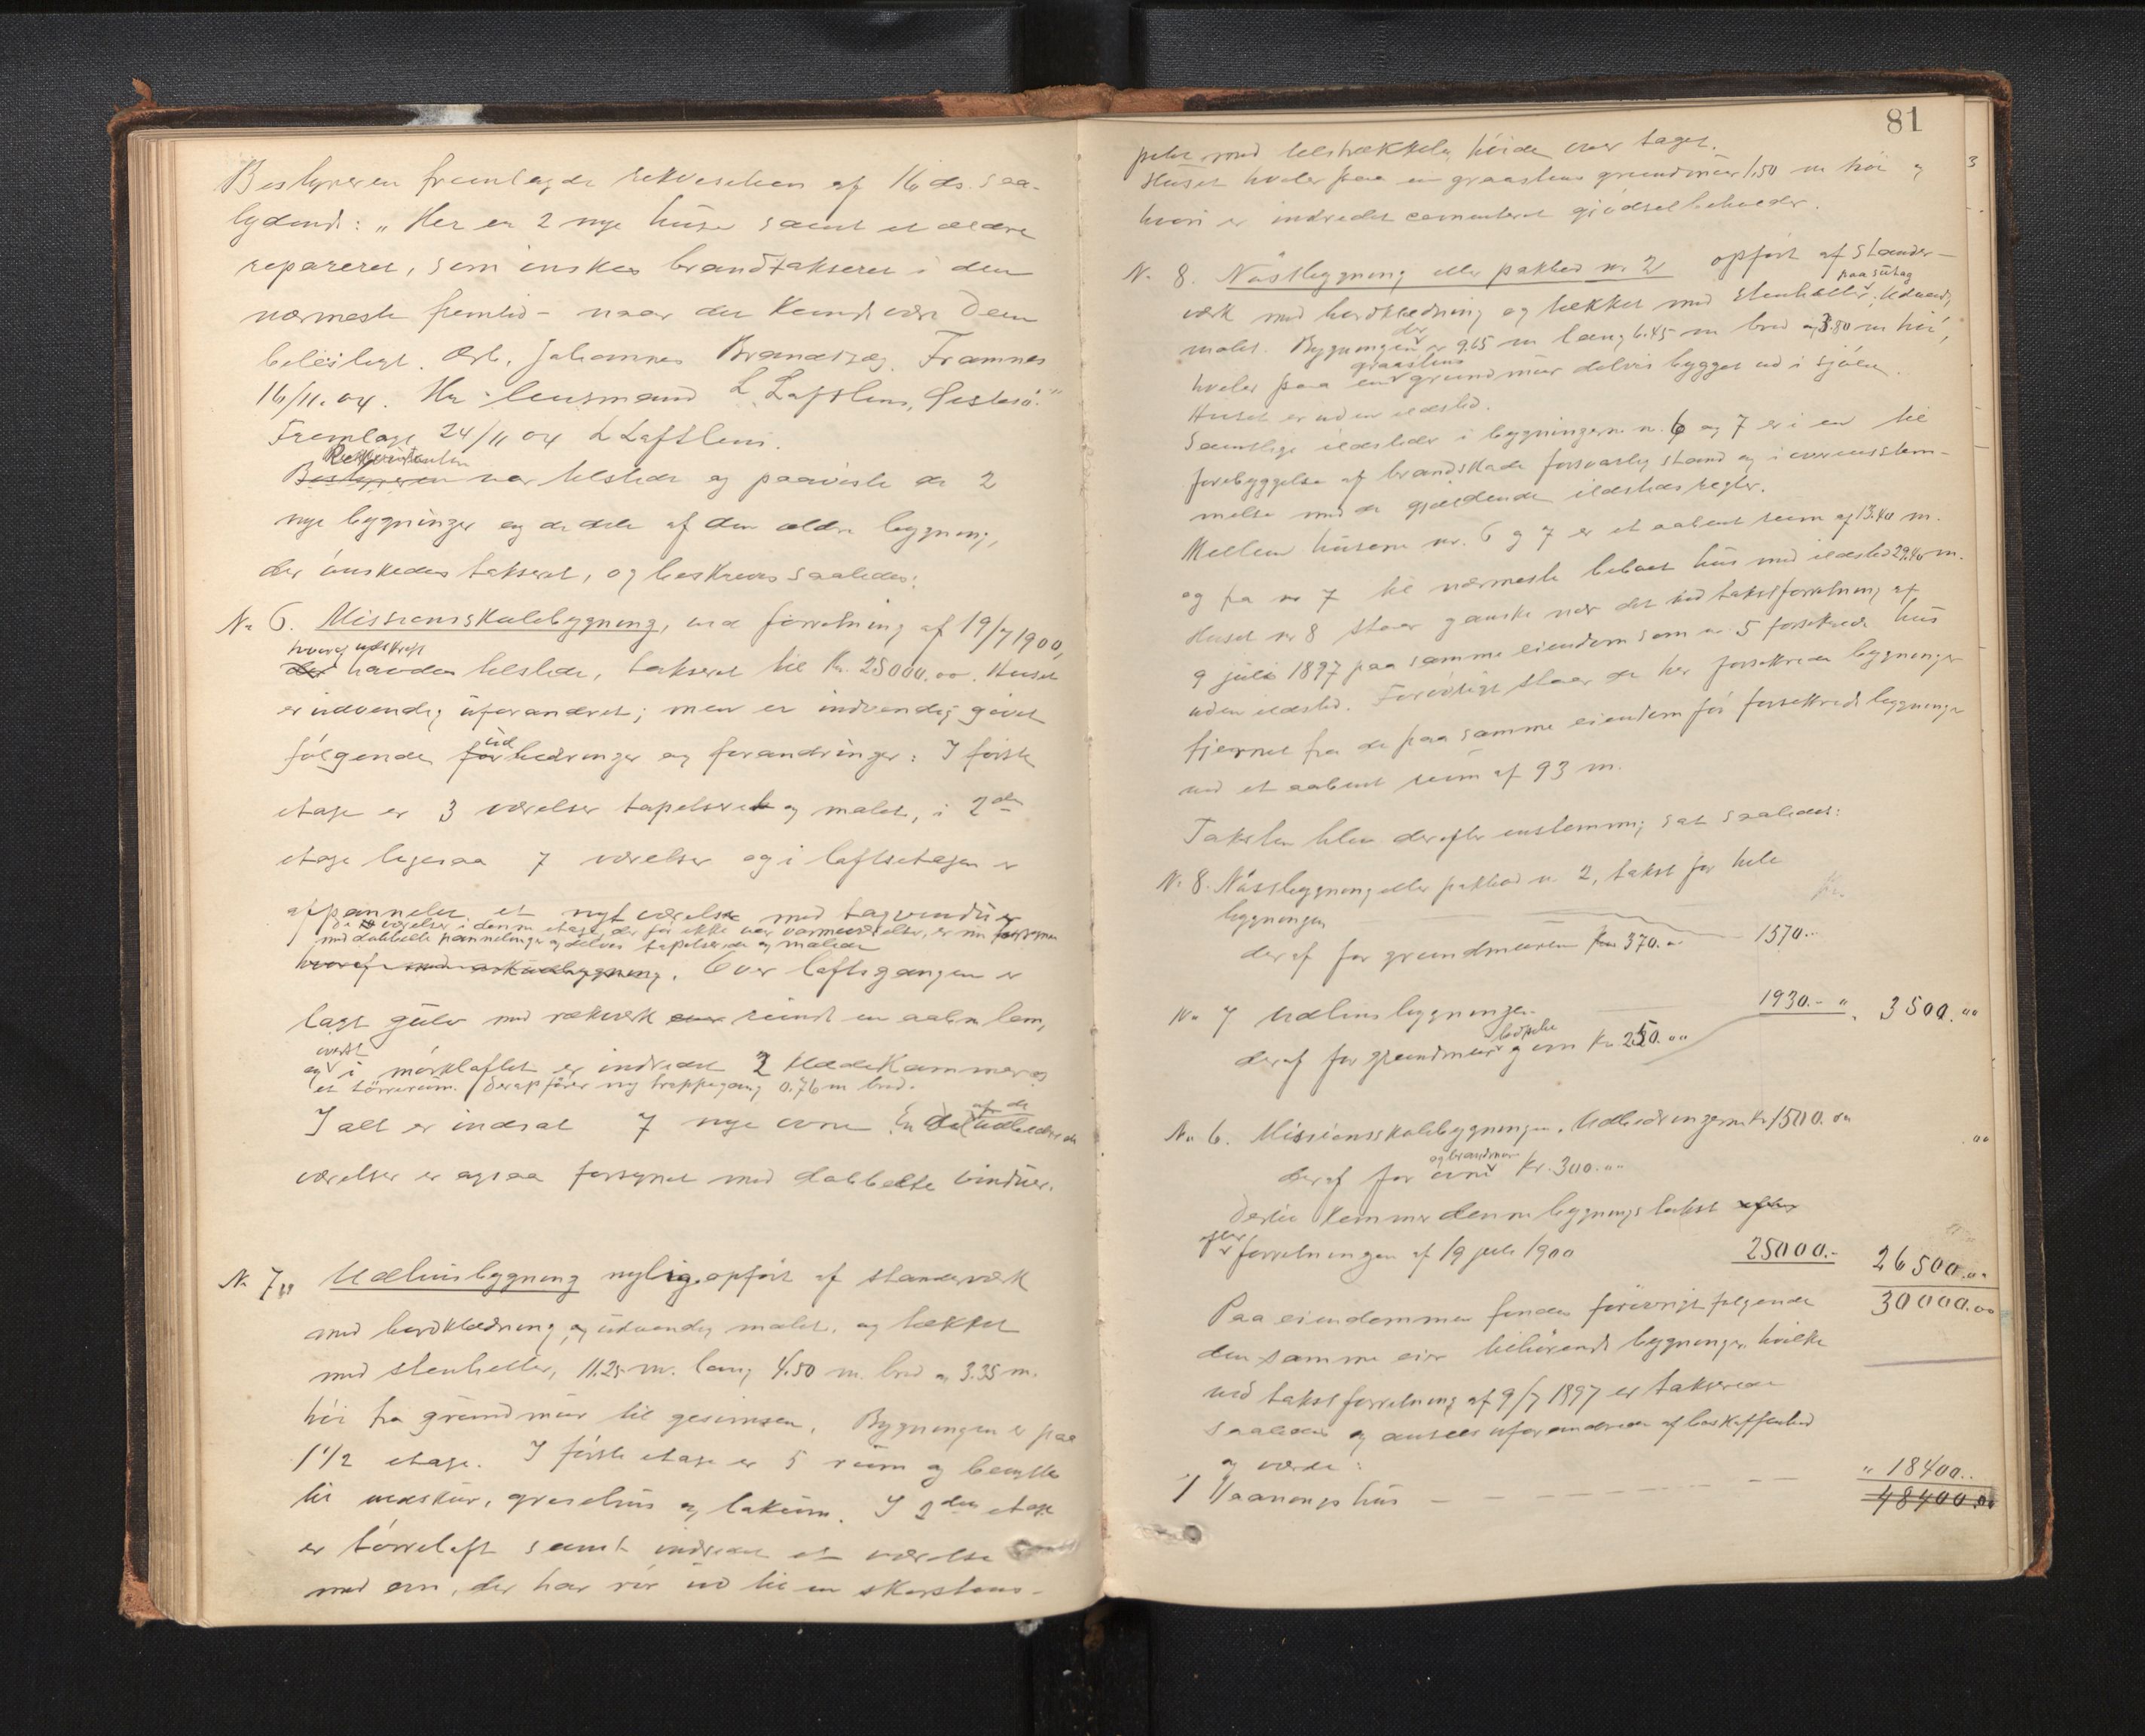 Bestyreren fremlagde rekvisition af 16 ds. saa-
lydende: „Her er 2 nye huse samt et ældre
repareret, som önskes brandtakseret i den
nærmeste fremtid - naar det kunde være Dem
beleiligt. Ærb. Johannes Brandtzæg. Framnes
16/11.04. Hr. lensmand L. Lofthus, Östesö."
Fremlagt 24/11 04 L Lofthus.
Rekvirenten
Bestyreren var tilstede og paaviste de 2
nye bygninger og de dele af den ældre bygning,
der önskedes takseret, og beskreves saaledes:
No 6. Missionsskolebygning, ved forretning af 19/7 1900,
hvoraf udskrift
der havdes tilstede, takseret til Kr. 25000.00. Huset
er udvendig uforandret; men er indvendig givet
ud
følgende forbedringer og forandringer: I förste
etage er 3 værelser tapetseret og malet, i 2den
etage ligesaa 7 værelser og i loftsetagen er
afpannelet et nyt værelse med tagvindu
De værelser i denne etage, der för ikke var varmeværelser, er nu forsynet
med dobbelte pannelinger og delvis tapetserede og malede
Over loftsgangen er
lagt gulv med rækverk rundt en aaben lem,
övest
og i mörkloftet er indredet 2 klædekammer og
et törrerum. Derop fører ny trappegang 0.76 m bred.
I alt er indsat 7 nye ovne. En del af de udbedrede
værelser er ogsaa forsynet med dobbelte vinduer.
No 7. Udhusbygning nylig opfört af standerværk
med bordklædning og udvendig malet, og tækket
med stenheller, 11.25 m. lang 4.50 m. bred og 3.35 m.
höi fra grundmur til gesimsen. Bygningen er paa
1 1/2 etage. I förste etage er 5 rum og benyttes
til vedskur, grisehus og lokum. I 2den etage
er törreloft samt indredet et værelse
med ovn, der har rör ud til en skorstens-
81
pibe med tilstrækkelig höide over taget.
Huset hviler paa en graastens grundmur 1.50 m höi og
hvori er indredet cementeret gjödselbeholder.
No 8. Nöstbygning eller pakbod nr 2 opfört af stander-
paa sutag
værk med bordklædning og tækket med stenheller. Udvendig
malet. Bygningen der er 9.65 m lang 6.45 m bred og 3.80 m höi,
graastens
hviler paa en grundmur delvis bygget ud i sjöen.
Huset er uden ildsted.
Samtlige ildsteder i bygningerne nr. 6 og 7 er i en til
forebyggelse af brandskade forsvarlig stand og i overensstem-
melse med de gjældende ildstedsregler.
Mellem husene nr. 6 og 7 er et aabent rum af 13.40 m.
og fra nr 7 til nærmeste beboet hus med ildsted 29.40 m.
Huset nr 8 staar ganske nær det ved takstforretning af
9 juli 1897 paa samme eiendom som nr 5 forsikrede hus
uden ildsted. Forövrigt staar de her forsikrede bygninger
fjernet fra de paa samme eiendom för forsikrede bygninger
ved et aabent rum af 93 m.
Taksten blev derefter enstemmig sat saaledes:
No 8. Nöstbygning eller pakbod nr. 2, takst for hele
Kr.
bygningen 1570..
deraf for grundmuren Kr 370.00
No 7 Udhusbygningen 1930.- " 3500.00
deraf for grundmur og ovn Kr 250.00
No 6. Missionsskolebygningen. Udbedringerne Kr 1500.00
og brandmur
deraf for ovne Kr. 300.00
Dertil kommer denne bygnings takst efter
efter
forretningen af 19 juli 1900 25000.- 26500.00
30000.00
Paa eiendommen findes forövrigt følgende
den samme eier tilhörende bygninger, hvilke
ved takstforretning af 9/7 1897 er takserede
saaledes og ansees uforandrede af beskaffenhed
og værdi:
1 Vaaningshus " 18400..
48400.00